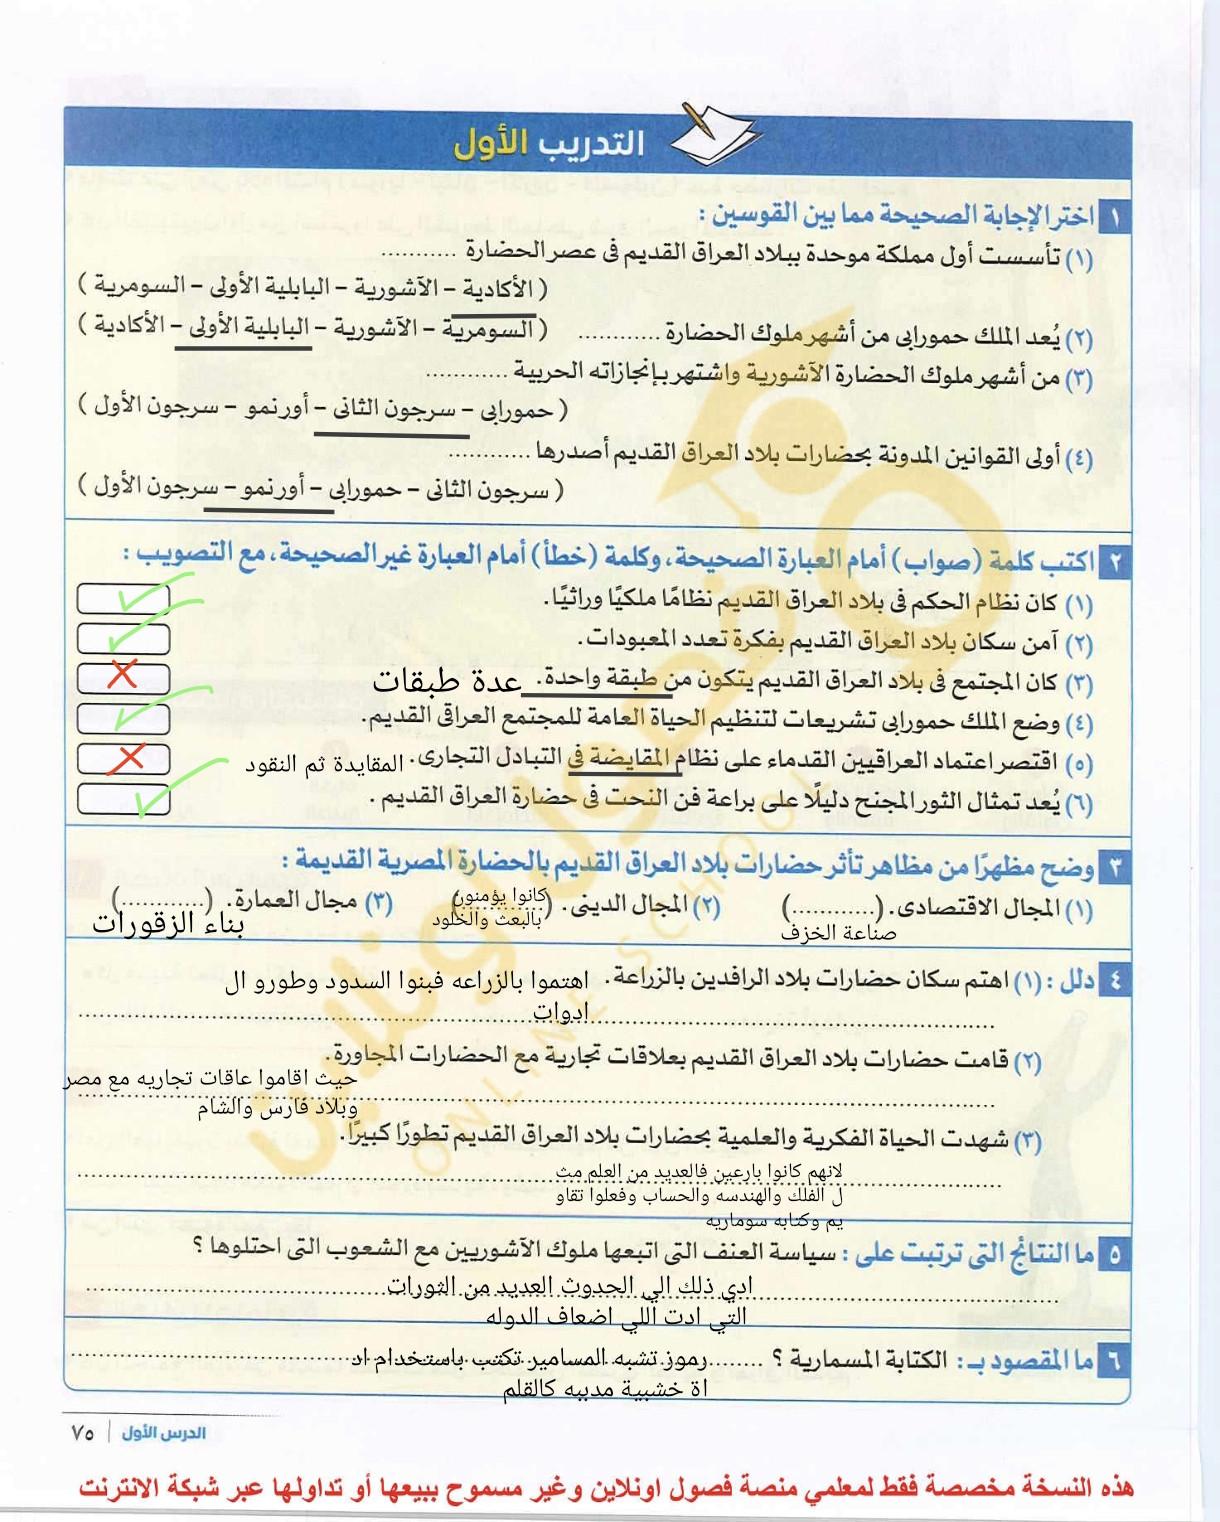 التدريب الأول
١ اختر الإجابة الصحيحة مما بين القوسين :
(١) تأسست أول مملكة موحدة ببلاد العراق القديم فى عصر الحضارة ...........
( الأكادية – الآشورية – البابلية الأولى – السومرية )
(٢) يُعد الملك حمورابى من أشهر ملوك الحضارة ............ ( السومرية – الآشورية – البابلية الأولى – الأكادية )
(٣) من أشهر ملوك الحضارة الآشورية واشتهر بإنجازاته الحربية ............
( حمورابى – سرجون الثانى – أورنمو – سرجون الأول )
(٤) أولى القوانين المدونة بحضارات بلاد العراق القديم أصدرها ............
( سرجون الثانى – حمورابى – أورنمو – سرجون الأول )
٢ اكتب كلمة (صواب) أمام العبارة الصحيحة، وكلمة (خطأ) أمام العبارة غير الصحيحة، مع التصويب :
(١) كان نظام الحكم فى بلاد العراق القديم نظامًا ملكيًا وراثيًا.
(٢) آمن سكان بلاد العراق القديم بفكرة تعدد المعبودات.
(٣) كان المجتمع فى بلاد العراق القديم يتكون من طبقة واحدة. عدة طبقات
(٤) وضع الملك حمورابى تشريعات لتنظيم الحياة العامة للمجتمع العراقى القديم.
(٥) اقتصر اعتماد العراقيين القدماء على نظام المقايضة فى التبادل التجارى. المقايدة ثم النقود
(٦) يُعد تمثال الثور المجنح دليلًا على براعة فن النحت فى حضارة العراق القديم .
٣ وضح مظهرًا من مظاهر تأثر حضارات بلاد العراق القديم بالحضارة المصرية القديمة :
(١) المجال الاقتصادى. (............) (٢) المجال الدينى. (............) (٣) مجال العمارة. (............)
صناعة الخزف
كانوا يؤمنون
بالبعث والخلود
بناء الزقورات
٤ دلل : (١) اهتم سكان حضارات بلاد الرافدين بالزراعة. اهتموا بالزراعه فبنوا السدود وطورو ال
ادوات
(٢) قامت حضارات بلاد العراق القديم بعلاقات تجارية مع الحضارات المجاورة.
حيث اقاموا عاقات تجاريه مع مصر
وبلاد فارس والشام
(٣) شهدت الحياة الفكرية والعلمية بحضارات بلاد العراق القديم تطورًا كبيرًا.
لانهم كانوا بارعين فالعديد من العلم مث
ل الفلك والهندسه والحساب وفعلوا تقاو
يم وكتابه سوماريه
٥ ما النتائج التى ترتبت على : سياسة العنف التى اتبعها ملوك الآشوريين مع الشعوب التى احتلوها ؟
ادي ذلك الي الحدوث العديد من الثورات
التي ادت اللي اضعاف الدوله
٦ ما المقصود بـ : الكتابة المسمارية ؟ ........رموز تشبه المسامير تكتب باستخدام اد
اة خشبية مدببه كالقلم
الدرس الأول | ٧٥
هذه النسخة مخصصة فقط لمعلمي منصة فصول اونلاين وغير مسموح ببيعها أو تداولها عبر شبكة الانترنت
فصول اونلاين
ONLINE SCHOOL